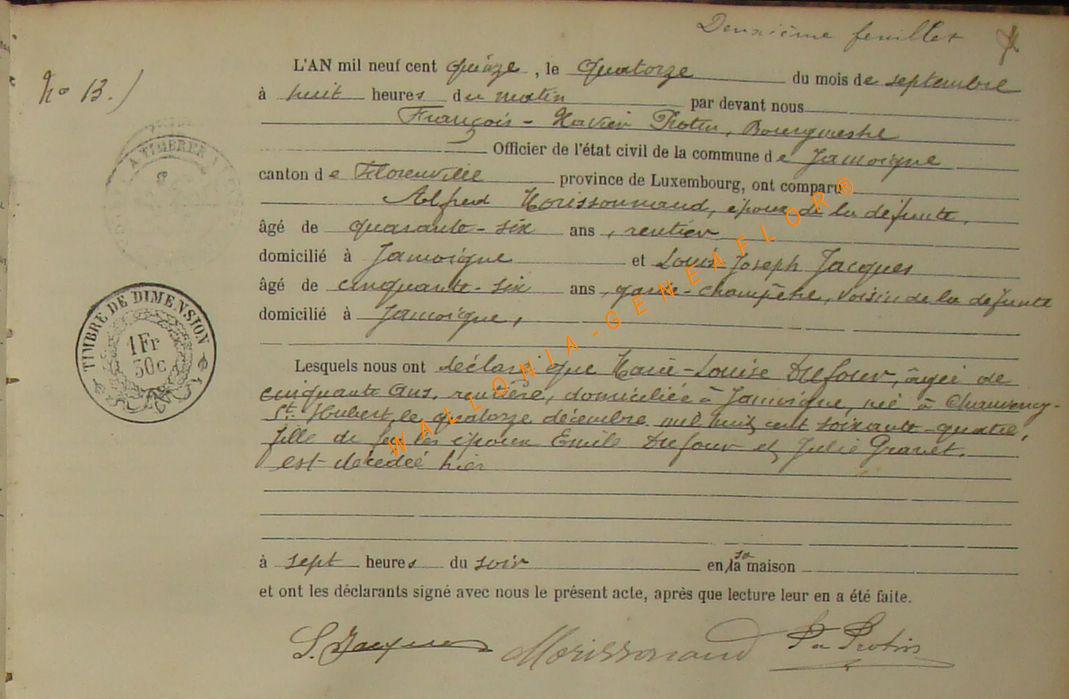 Deuxième feuillet
No 13.)
L'AN mil neuf cent quinze, le quatorze du mois de septembre
à huit heures du matin par devant nous
François-Xavier Protin, Bourgmestre
Officier de l'état civil de la commune de Jamoigne
canton de Florenville province de Luxembourg, ont comparu
Alfred Morissonnaud, époux de la défunte,
âgé de quarante-six ans, rentier
domicilié à Jamoigne et Louis Joseph Jacques
âgé de cinquante-six ans, garde-champêtre, voisin de la défunte
domicilié à Jamoigne,
TIMBRE DE DIMENSION
1 Fr
50 c
Lesquels nous ont déclaré que Marie-Louise Dufour, âgée de
cinquante ans, rentière, domiciliée à Jamoigne, née à Chauvency-
St. Hubert le quatorze décembre mil huit cent soixante-quatre,
fille de feu les époux Emile Dufour et Julie Gravet.
est décédée hier
à sept heures du soir en sa maison
et ont les déclarants signé avec nous le présent acte, après que lecture leur en a été faite.
Jacques Morissonnaud Protin
WALLONIA-GENEAFLOR©